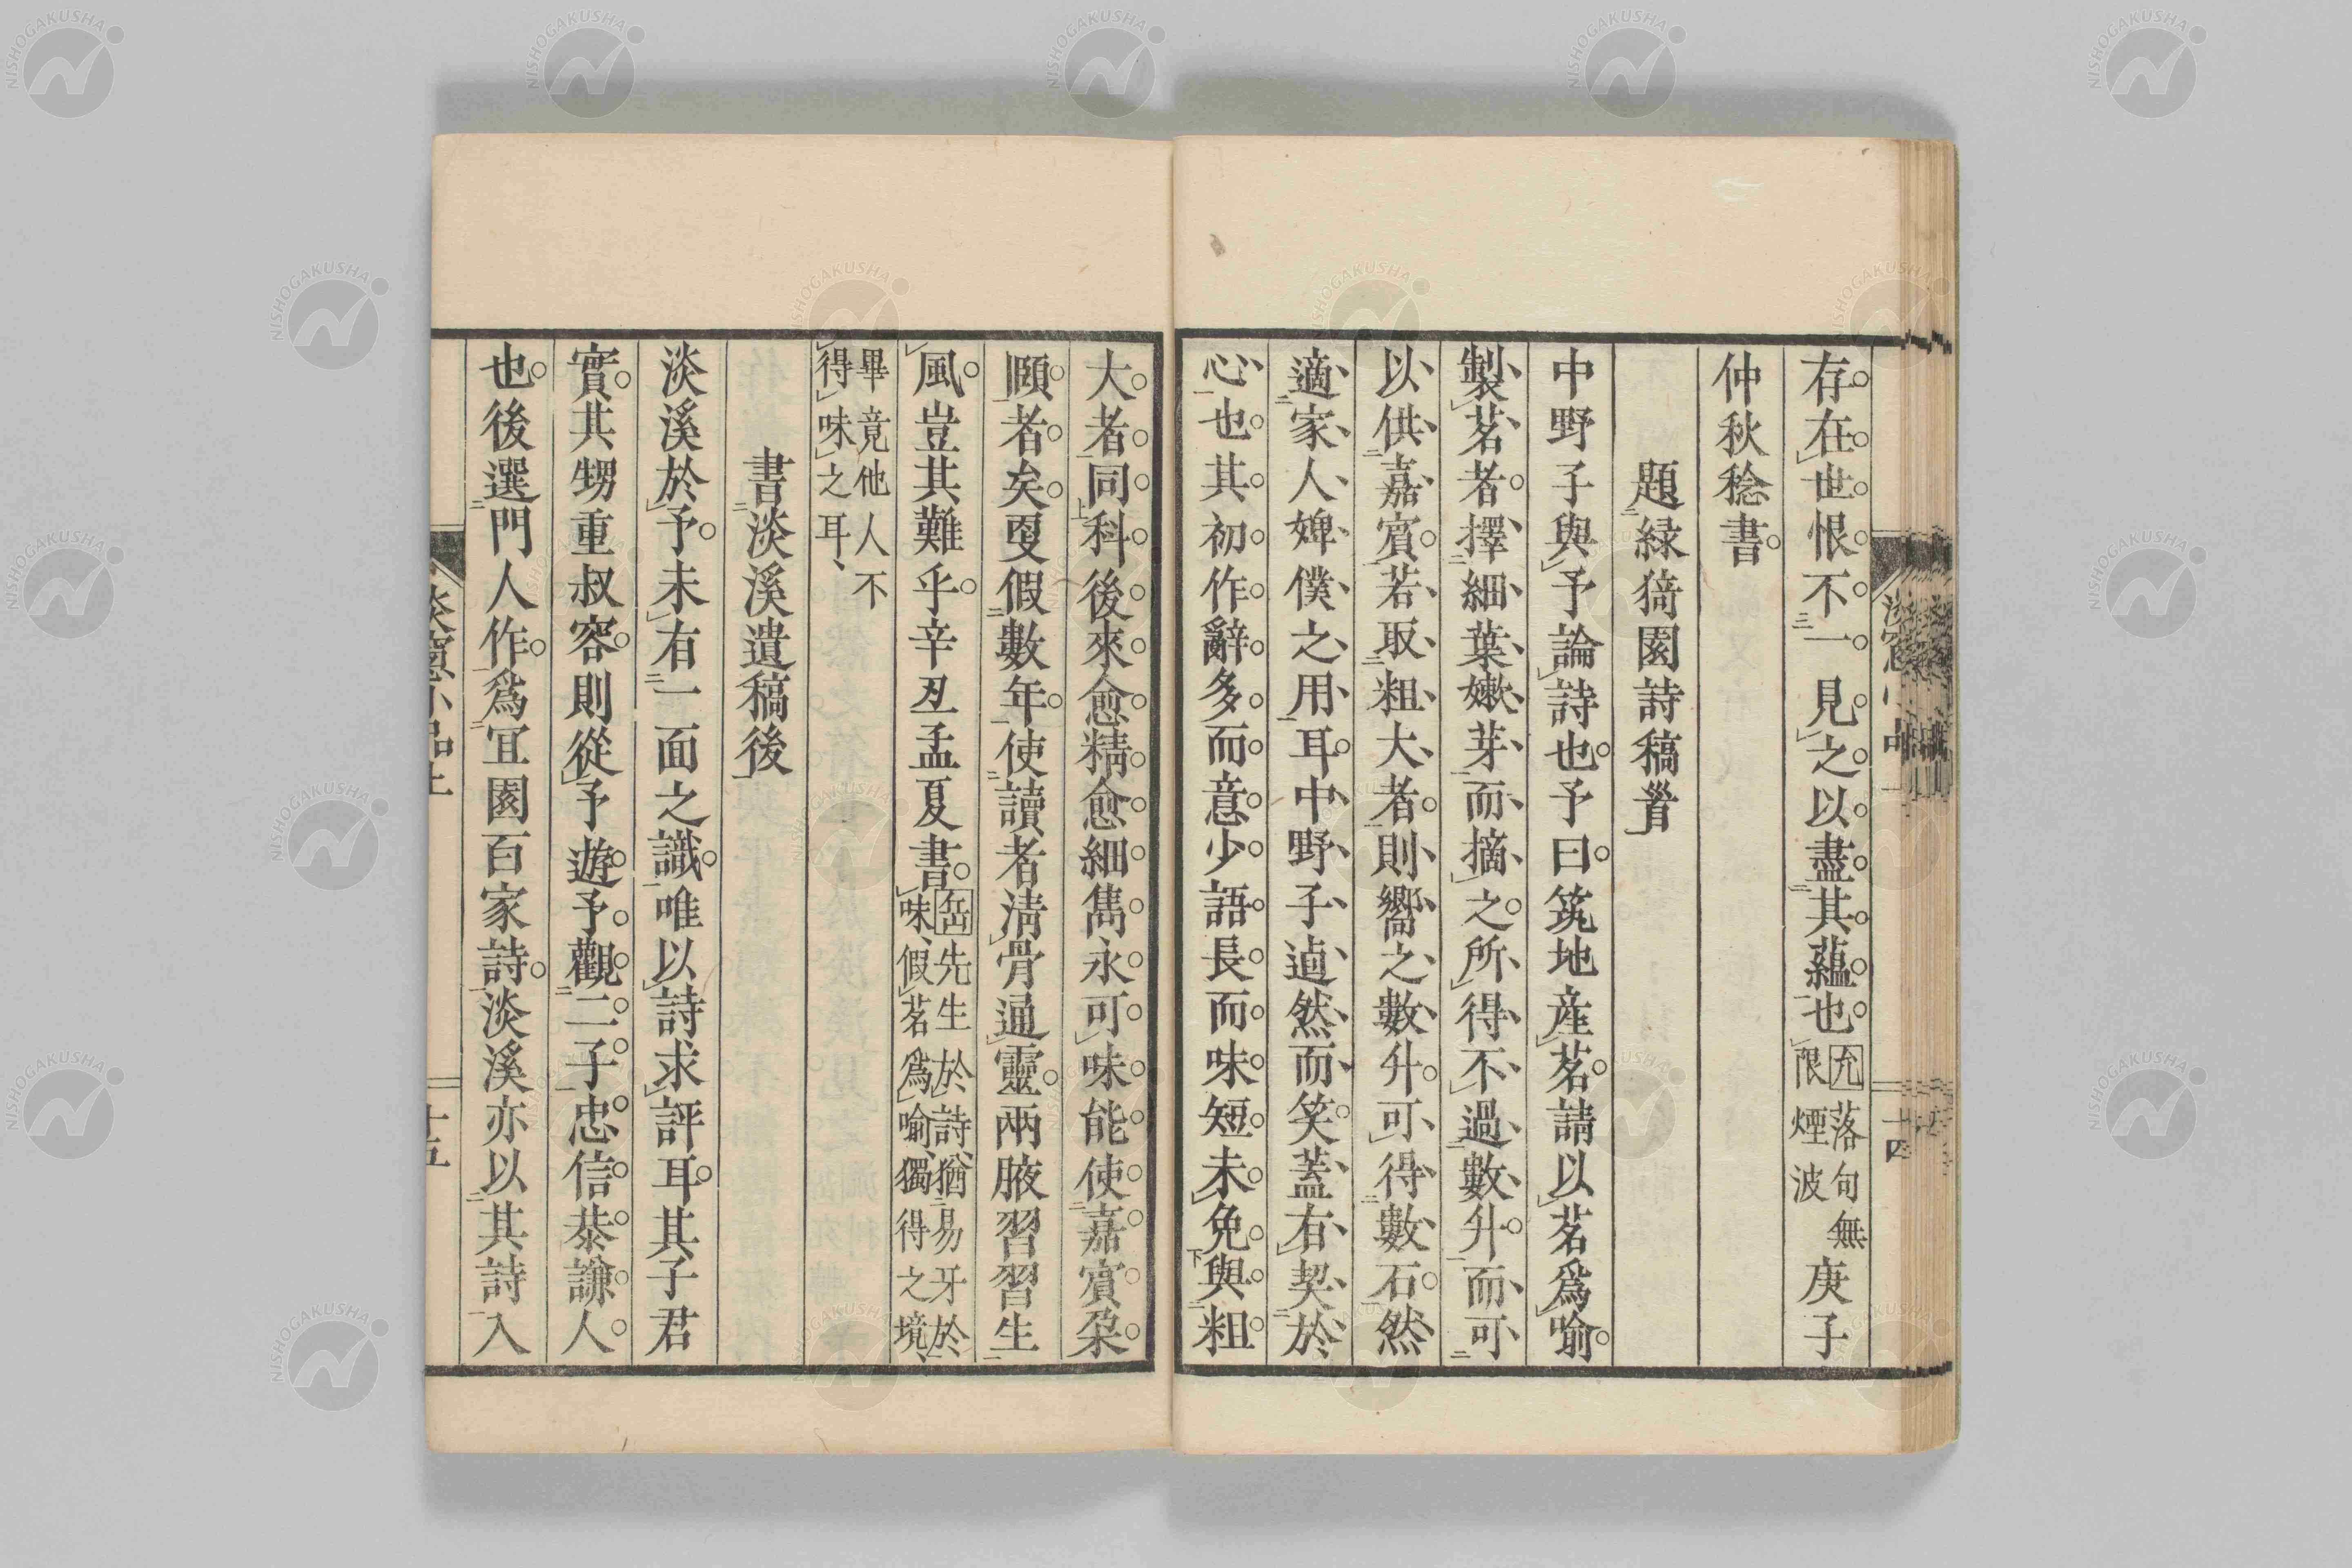 存在世恨不一見之以盡其蘊也允落句無限煙波庚子
仲秋稔書
題緑猗園詩稿首
中野子與予論詩也予曰筑地産茗請以茗爲喻
製茗者擇細葉嫩芽而摘之所得不過數升而可
以供嘉賓若取粗大者則嚮之數升可得數石然
適家人婢僕之用耳中野子逌然而笑蓋有契於
心也其初作辭多而意少語長而味短未免與粗
大者同科後來愈精愈細雋永可味能使嘉賓朶
頤者矣更假數年使讀者淸骨通靈兩腋習習生
風豈其難乎辛丑孟夏書岳先生於詩猶易牙於味假茗爲喻獨得之境
畢竟他人不得味之耳
書淡溪遺稿後
淡溪於予未有一面之識唯以詩求評耳其子君
實其甥重叔容則從予遊予觀二子忠信恭謙人
也後選門人作爲宜園百家詩淡溪亦以其詩入
淡窓小品上
十五
十四
NISHOGAKUSHA